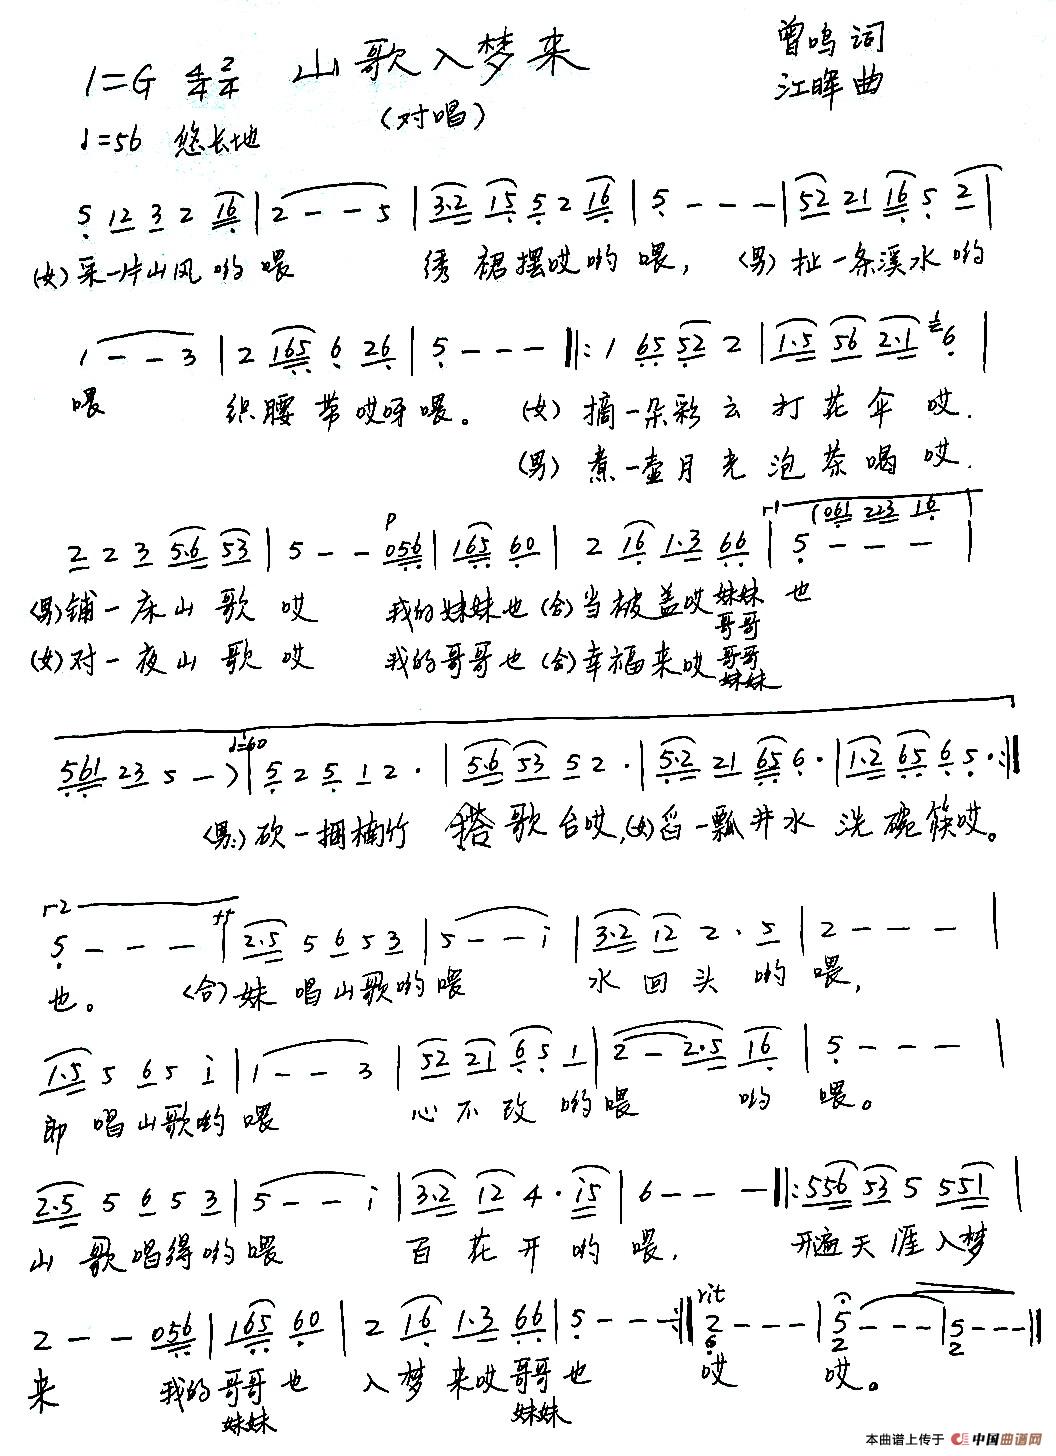 山歌入梦来
曾鸣词
1=G 4/4 2/4
(对唱)
江晖曲
♩=56 悠长地
5 12 3 2 16 | 2 - - 5 | 3·2 15 5 2 16 | 5 - - - | 52 21 16 5 2 |
(女)采一片山风哟喂 绣裙摆哎哟喂, (男)扯一条溪水哟
1 - - 3 | 2 165 6 26 | 5 - - - ‖: 1 65 52 2 | 1·5 56 2·1 6 |
喂 织腰带哎呀喂。 (女)摘一朵彩云打花伞哎.
(男)煮一壶月光泡茶喝哎.
2 2 3 5·6 53 | 5 - - 056 | 165 60 | 2 16 1·3 66 | 5 - - - |
P
1 (061 223 16
(男)铺一床山歌哎 我的妹妹也(合)当被盖哎妹妹也
哥哥
(女)对一夜山歌哎 我的哥哥也(合)幸福来哎哥哥
妹妹
561 23 5 -) | 5 2 5 1 2· | 5·6 53 5 2· | 5·2 21 65 6· | 1·2 65 6 5· :‖
♩=60
(男)砍一捆楠竹 搭歌台哎,(女)舀一瓢井水洗碗筷哎。
2
5 - - - | 2·5 5 6 5 3 | 5 - - i | 3·2 12 2· 5 | 2 - - - |
也。 (合)妹唱山歌哟喂 水回头哟喂,
1·5 5 65 i | 1 - - 3 | 52 21 65 1 | 2 - 2·5 16 | 5 - - - |
郎唱山歌哟喂 心不改哟喂 哟喂。
2·5 5 6 5 3 | 5 - - i | 3·2 12 4· i5 | 6 - - - ‖: 556 53 5 551 |
山歌唱得哟喂 百花开哟喂, 开遍天涯入梦
2 - - 056 | 165 60 | 2 16 1·3 66 | 5 - - - :‖ 2 - - - | 5 - - - | 5 - - - ‖
rit
6 2 2
来 我的哥哥也 入梦来哎哥哥也 哎 哎。
妹妹 妹妹
本曲谱上传于 中国曲谱网